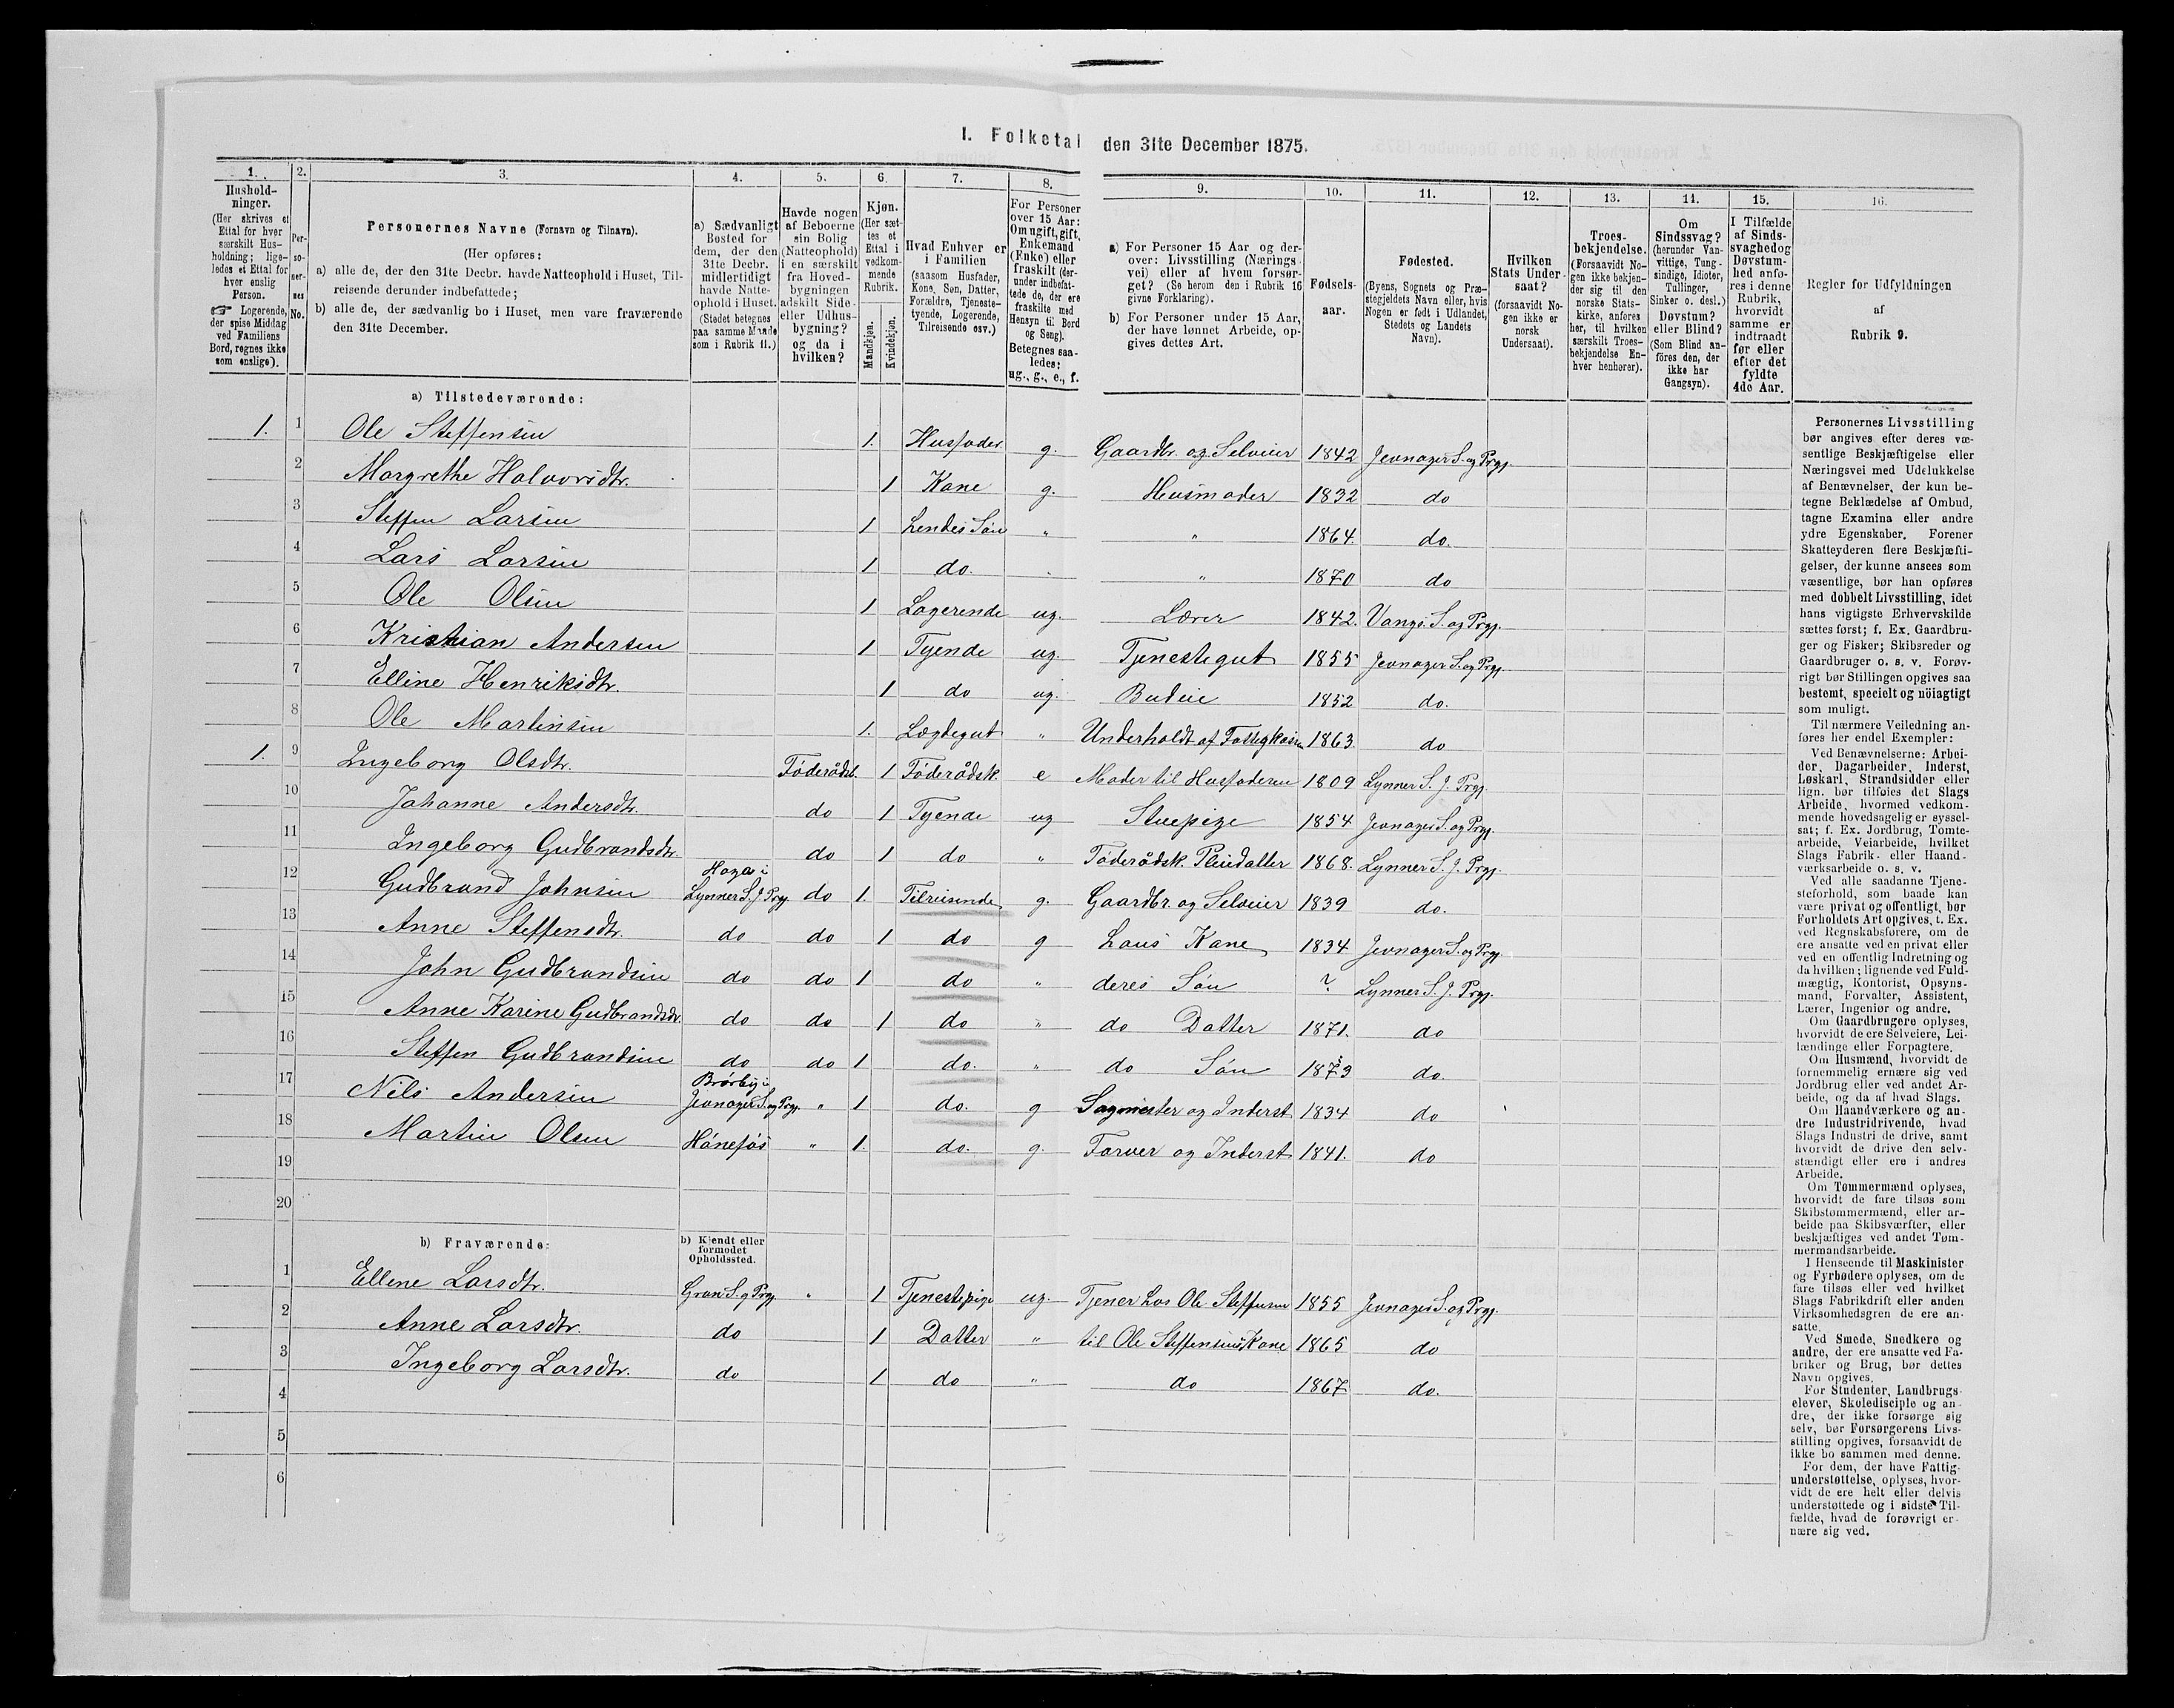 I. Folketal den 31te December 1875.
1.
Hushold-
ninger.
(Her skrives et
Ettal for hver
særskilt Hus-
holdning; lige-
ledes et Ettal for
hver enslig
Person.
☞ Logerende,
der spise Middag
ved Familiens
Bord, regnes ikke
som enslige).
2.
Per-
so-
ner-
nes
No.
3.
Personernes Navne (Fornavn og Tilnavn).
(Her opføres:
a) alle de, der den 31te Decbr. havde Natteophold i Huset, Til-
reisende derunder indbefattede;
b) alle de, der sædvanlig bo i Huset, men vare fraværende
den 31te December.
4.
a) Sædvanligt
Bosted for
dem, der den
31te Decbr.
midlertidigt
havde Natte-
ophold i Huset.
(Stedet betegnes
paa samme Maade
som i Rubrik 11.)
5.
Havde nogen
af Beboerne
sin Bolig
(Natteophold)
i en særskilt
fra Hoved-
bygningen
adskilt Side-
eller Udhus-
bygning?
og da i
hvilken?
6.
Kjøn.
(Her sæt-
tes et
Ettal i
vedkom-
mende
Rubrik.
Mandkjøn.
Kvindekjøn.
7.
Hvad Enhver er
i Familien
(saasom Husfader,
Kone, Søn, Datter,
Forældre, Tjeneste-
tyende, Logerende,
Tilreisende osv.)
8.
For Personer
over 15 Aar:
Om ugift, gift,
Enkemand
(Enke) eller
fraskilt (der-
under indbefat-
tede de, der ere
fraskilte med
Hensyn til Bord
og Seng).
Betegnes saa-
ledes:
ug., g., e., f.
9.
a) For Personer 15 Aar og der-
over: Livsstilling (Nærings-
vei) eller af hvem forsør-
get? (Se herom den i Rubrik 16
givne Forklaring).
b) For Personer under 15 Aar,
der have lønnet Arbeide, op-
gives dettes Art.
10.
Fødsels-
aar.
11.
Fødested.
(Byens, Sognets og Præ-
stegjeldets Navn eller, hvis
Nogen er født i Udlandet,
Stedets og Landets
Navn).
12.
Hvilken
Stats Under-
saat?
(forsaavidt No-
gen ikke er
norsk
Undersaat).
13.
Troes-
bekjendelse.
(Forsaavidt No-
gen ikke bekjen-
der sig til den
norske Stats-
kirke, anføres
her, til hvilken
særskilt Troes-
bekjendelse En-
hver henhører).
14.
Om
Sindssvag?
(herunder Van-
vittige, Tung-
sindige, Idioter,
Tullinger,
Sinker o. desl.)
Døvstum?
eller Blind?
(Som Blind an-
føres den, der
ikke har
Gangsyn).
15.
I Tilfælde
af Sinds-
svaghed og
Døvstum-
hed anfø-
res i denne
Rubrik,
hvorvidt
samme er
indtraadt
før eller
efter det
fyldte
4de Aar.
16.
Regler for Udfyldningen
af
Rubrik 9.
a) Tilstedeværende:
1. 1 Ole Steffensen 1. Husfader g. Gaardbr. og Selveier 1842 Jevnager S. og Prgj.
2 Margrethe Halvorsdtr. 1 Kone g. Husmoder 1832 do
3 Steffen Larsen 1 Hendes Søn " " 1864. do.
4 Lars Larsen 1 do. " 1870 do
5 Ole Olsen 1 Logerende ug. Lærer 1842. Vangs. S. og Prgj.
6 Kristian Andersen 1 Tyende ug. Tjenestegut 1855 Jevnager S. og Prgj.
7 Elline Henriksdtr. 1 do ug. Budeie 1852 do.
8 Ole Martinsen 1. Lægdegut " Underholdt af Fattigkassen 1863 do
1. 9 Ingeborg Olsdtr. Föderådsb. 1 Föderådsk. e Moder til Husfaderen 1809 Lynner S. J. Prgj.
10 Johanne Andersdtr. do 1 Tyende ug Stuepige 1854 Jevnager S. og Prgj.
11 Ingeborg Gudbrandsdtr. do 1 do " Föderådsk. Pleiedatter 1868. Lynner S. J. Prgj.
12 Gudbrand Johnsen Haga i Lynner S. J. Prgj. do 1. Tilreisende g. Gaardbr. og Selveier 1839 do.
13 Anne Steffensdtr. do do 1 do g hans Kone 1834 Jevnager S. og Prgj.
14 John Gudbrandsen do do 1 do " deres Søn ? Lynner S. J. Prgj.
15 Anne Karine Gudbrandsdtr. do do 1 do " do Datter 1871. do
16 Steffen Gudbrandsen do do 1 do. " do Søn 1873 do.
17 Nils Andersen Brörby i Jevnager S. og Prgj. " 1 do. g Sagmester og Inderst 1834 do
18 Martin Olsen Hönefos " 1. do. g. Farver og Inderst 1841. do
19
20
b) Fraværende:
b) Kjendt eller
formodet
Opholdssted.
1 Elline Larsdtr. Gran S. og Prgj. " 1 Tjenestepige ug. Tjener hos Ole Steffensen 1855 Jevnager S. og Prgj.
2 Anne Larsdtr. do 1 Datter " til Ole Steffensens Kone 1865 do
3 Ingeborg Larsdtr. do 1 do " do 1867 do.
4
5
6
Personernes Livsstilling
bør angives efter deres væ-
sentlige Beskjæftigelse eller
Næringsvei med Udelukkelse
af Benævnelser, der kun be-
tegne Beklædelse af Ombud,
tagne Examina eller andre
ydre Egenskaber. Forener
Skatteyderen flere Beskjæfti-
gelser, der kunne ansees som
væsentlige, bør han opføres
med dobbelt Livsstilling, idet
hans vigtigste Erhvervskilde
sættes først; f. Ex. Gaardbru-
ger og Fisker; Skibsreder og
Gaardbruger o. s. v. Forøv-
rigt bør Stillingen opgives saa
bestemt, specielt og nöiagtigt
som muligt.
Til nærmere Veiledning an-
føres her endel Exempler:
Ved Benævnelserne: Arbei-
der, Dagarbeider, Inderst,
Løskarl, Strandsidder eller
lign. bør tilføies det Slags
Arbeide, hvormed vedkom-
mende hovedsagelig er syssel-
sat; f. Ex. Jordbrug, Tomte-
arbeide, Veiarbeide, hvilket
Slags Fabrik- eller Haand-
værksarbeide o. s. v.
Ved alle saadanne Tjene-
steforhold, som baade kan
være privat og offentligt, bør
Forholdets Art opgives, t. Ex.
ved Regnskabsførere, om de
ere ansatte ved en privat eller
ved en offentlig Indretning og
da hvilken; lignende ved Fuld-
mægtig, Kontorist, Opsyns-
mand, Forvalter, Assistent,
Lærer, Ingeniør og andre.
Om Gaardbrugere oplyses,
hvorvidt de ere Selveiere, Lei-
lændinge eller Forpagtere.
Om Husmænd, hvorvidt de
fornemmelig ernære sig ved
Jordbrug eller ved andet Ar-
beide, og da af hvad Slags.
Om Haandværkere og an-
dre Industridrivende, hvad
Slags Industri de drive, samt
hvorvidt de drive den selv-
stændigt eller ere i andres
Arbeide.
Om Tømmermænd oplyses,
hvorvidt de fare tilsøs som
Skibstømmermænd, eller ar-
beide paa Skibsværfter, eller
beskjæftiges ved andet Tøm-
mermandsarbeide.
I Henseende til Maskinister
og Fyrbødere oplyses, om de
fare tilsøs eller ved hvilket
Slags Fabrikdrift eller anden
Virksomhedsgren de ere an-
satte.
Ved Smede, Snedkere og
andre, der ere ansatte ved Fa-
briker og Brug, bør dettes
Navn opgives.
For Studenter, Landbrugs-
elever, Skoledisciple og an-
dre, der ikke forsørge sig
selv, bør Forsørgerens Livs-
stilling opgives, forsaavidt de
ikke bo sammen med denne.
For dem, der have Fattig-
understøttelse, oplyses, hvor-
vidt de ere helt eller delvis
understøttede og i sidste Til-
fælde, hvad de forøvrigt er-
nære sig ved.